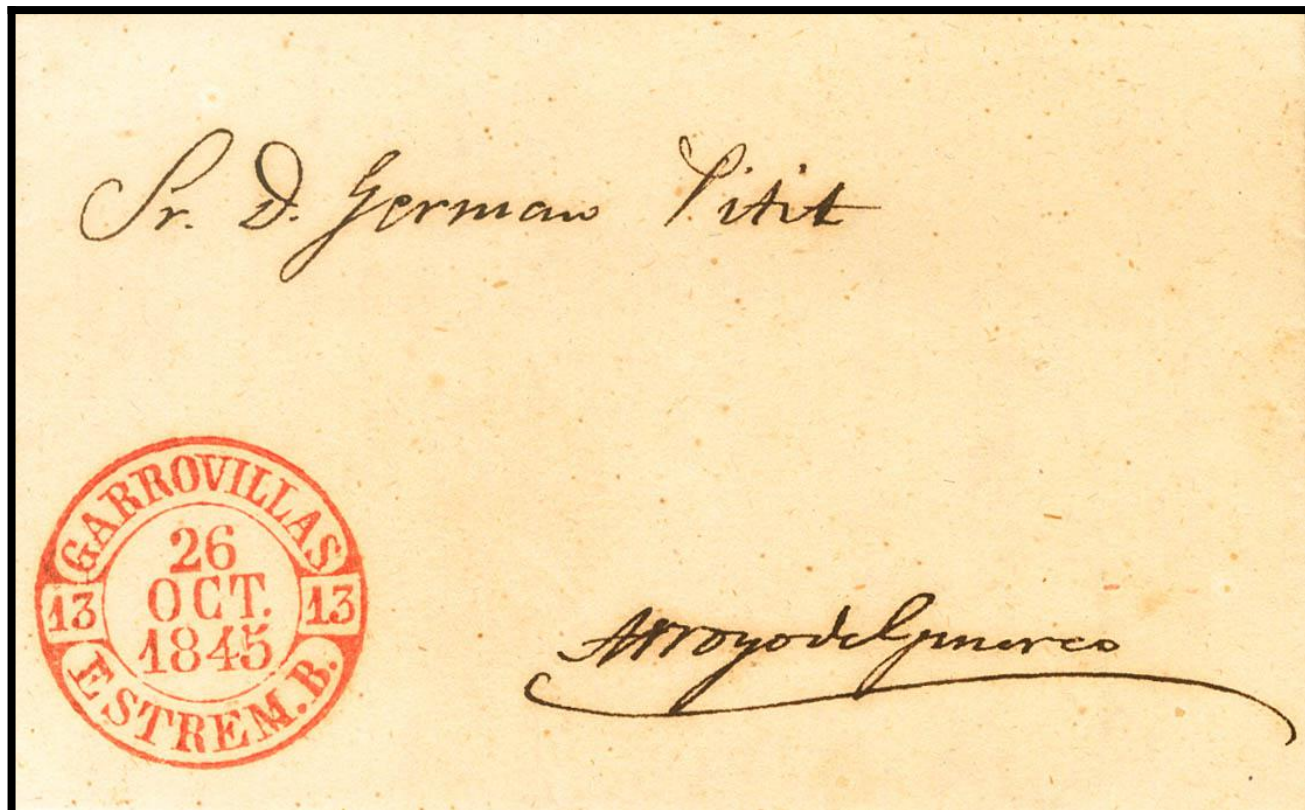 Sr. D. German Petit
GARROVILLAS
26
OCT.
1845
13 13
ESTREM. B.
Arroyo del Puerco